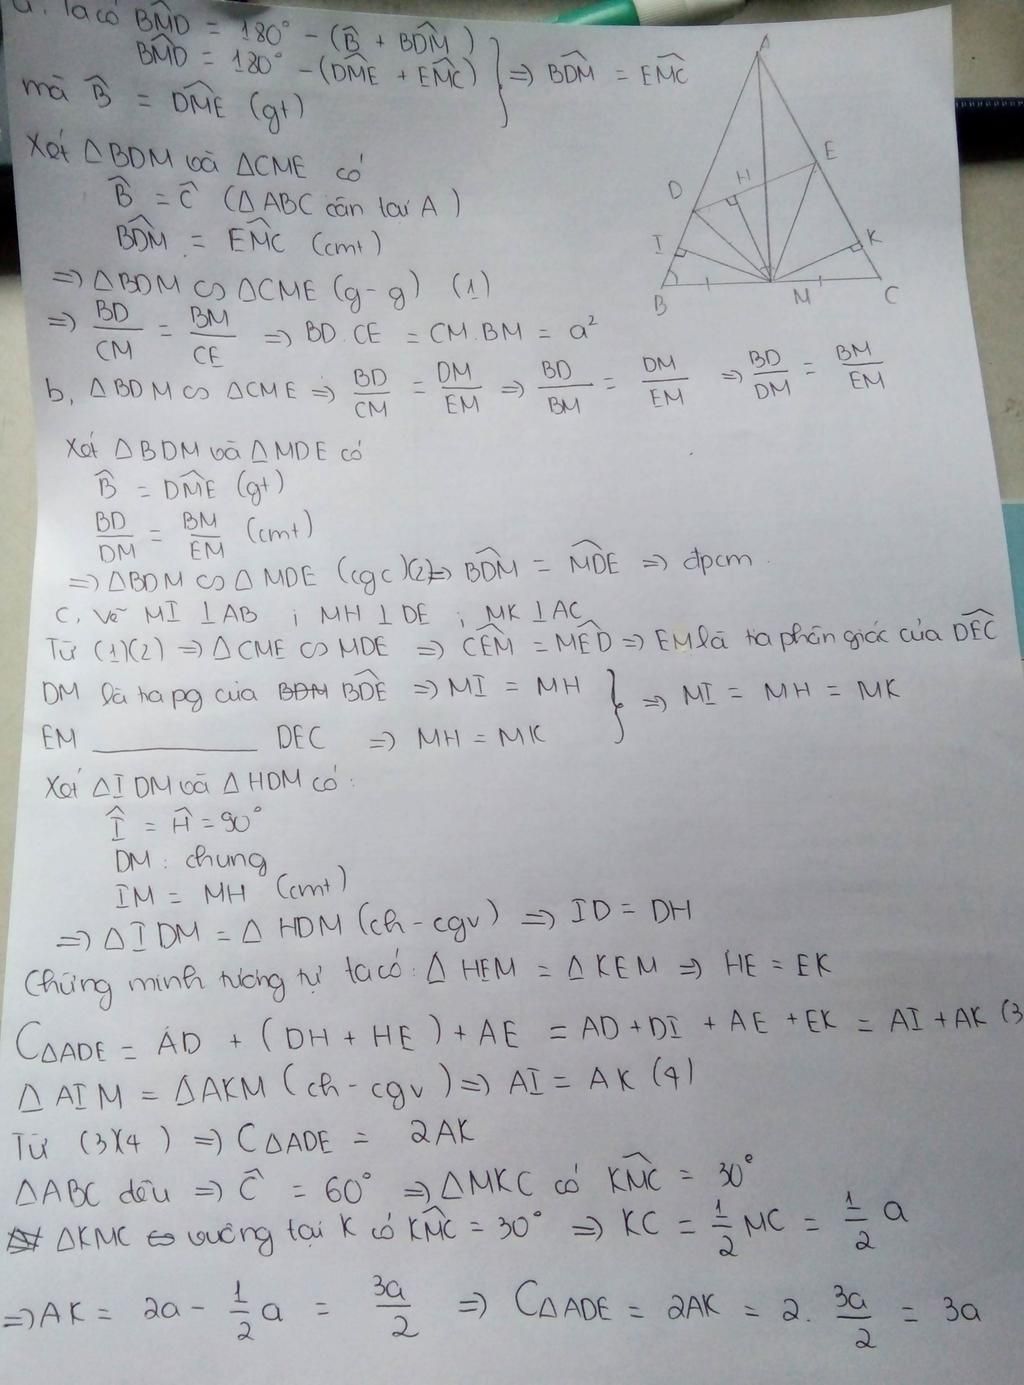 a. Ta có BM̂D = 180° - (B̂ + BD̂M)
BM̂D = 180° - (DM̂E + EM̂C) } => BD̂M = EM̂C
mà B̂ = DM̂E (gt)
Xét △BDM và △CME có
B̂ = Ĉ (△ABC cân tại A)
BD̂M = EM̂C (cmt)
=> △BDM ∽ △CME (g-g) (1)
=> BD/CM = BM/CE => BD.CE = CM.BM = a²
b, △BDM ∽ △CME => BD/CM = DM/EM => BD/BM = DM/EM => BD/DM = BM/EM
Xét △BDM và △MDE có
B̂ = DM̂E (gt)
BD/DM = BM/EM (cmt)
=> △BDM ∽ △MDE (cgc)(2)=> BD̂M = MD̂E => đpcm.
c, Vẽ MI ⊥ AB ; MH ⊥ DE ; MK ⊥ AC
Từ (1)(2) => △CME ∽ MDE => CÊM = MÊD => EM là tia phân giác của DÊC
DM là tia pg của BDM BD̂E => MI = MH } => MI = MH = MK
EM ________ DEC => MH = MK
Xét △IDM và △HDM có:
Î = Ĥ = 90°
DM: chung
IM = MH (cmt)
=> △IDM = △HDM (ch-cgv) => ID = DH
Chứng minh tương tự ta có: △HEM = △KEM => HE = EK
C△ADE = AD + (DH + HE) + AE = AD + DI + AE + EK = AI + AK (3
△AIM = △AKM (ch-cgv) => AI = AK (4)
Từ (3)(4) => C△ADE = 2AK
△ABC đều => Ĉ = 60° => △MKC có KM̂C = 30°
△KMC vuông tại K có KM̂C = 30° => KC = 1/2 MC = 1/2 a
=> AK = 2a - 1/2 a = 3a/2 => C△ADE = 2AK = 2. 3a/2 = 3a
A
E
H
D
I
K
B
M
C